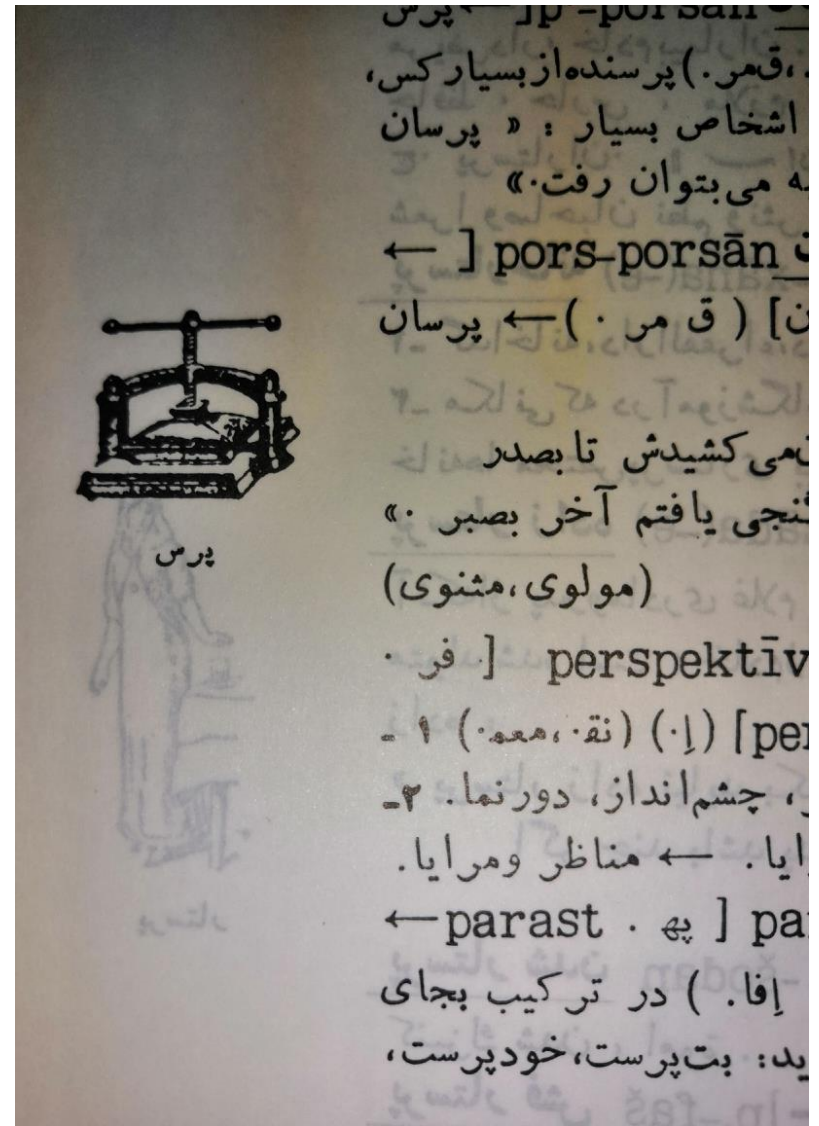 p-porsān [← پرس
،قمر.) پرسنده از بسیار کس،
اشخاص بسیار : « پرسان
می بتوان رفت.»
pors-porsān [ ←
] ( ق مر . ) ← پرسان
پرس
کشیدش تا بصدر
یافتم آخر بصبر .»
(مولوی،مثنوی)
perspektīv [. فر .
] (اِ.) (نق.،معم.) ۱ -
، چشم‌انداز، دورنما. ۲-
← مناظر ومرایا.
[ په . parast ←
اِفا. ) در ترکیب بجای
بت‌پرست،خودپرست،